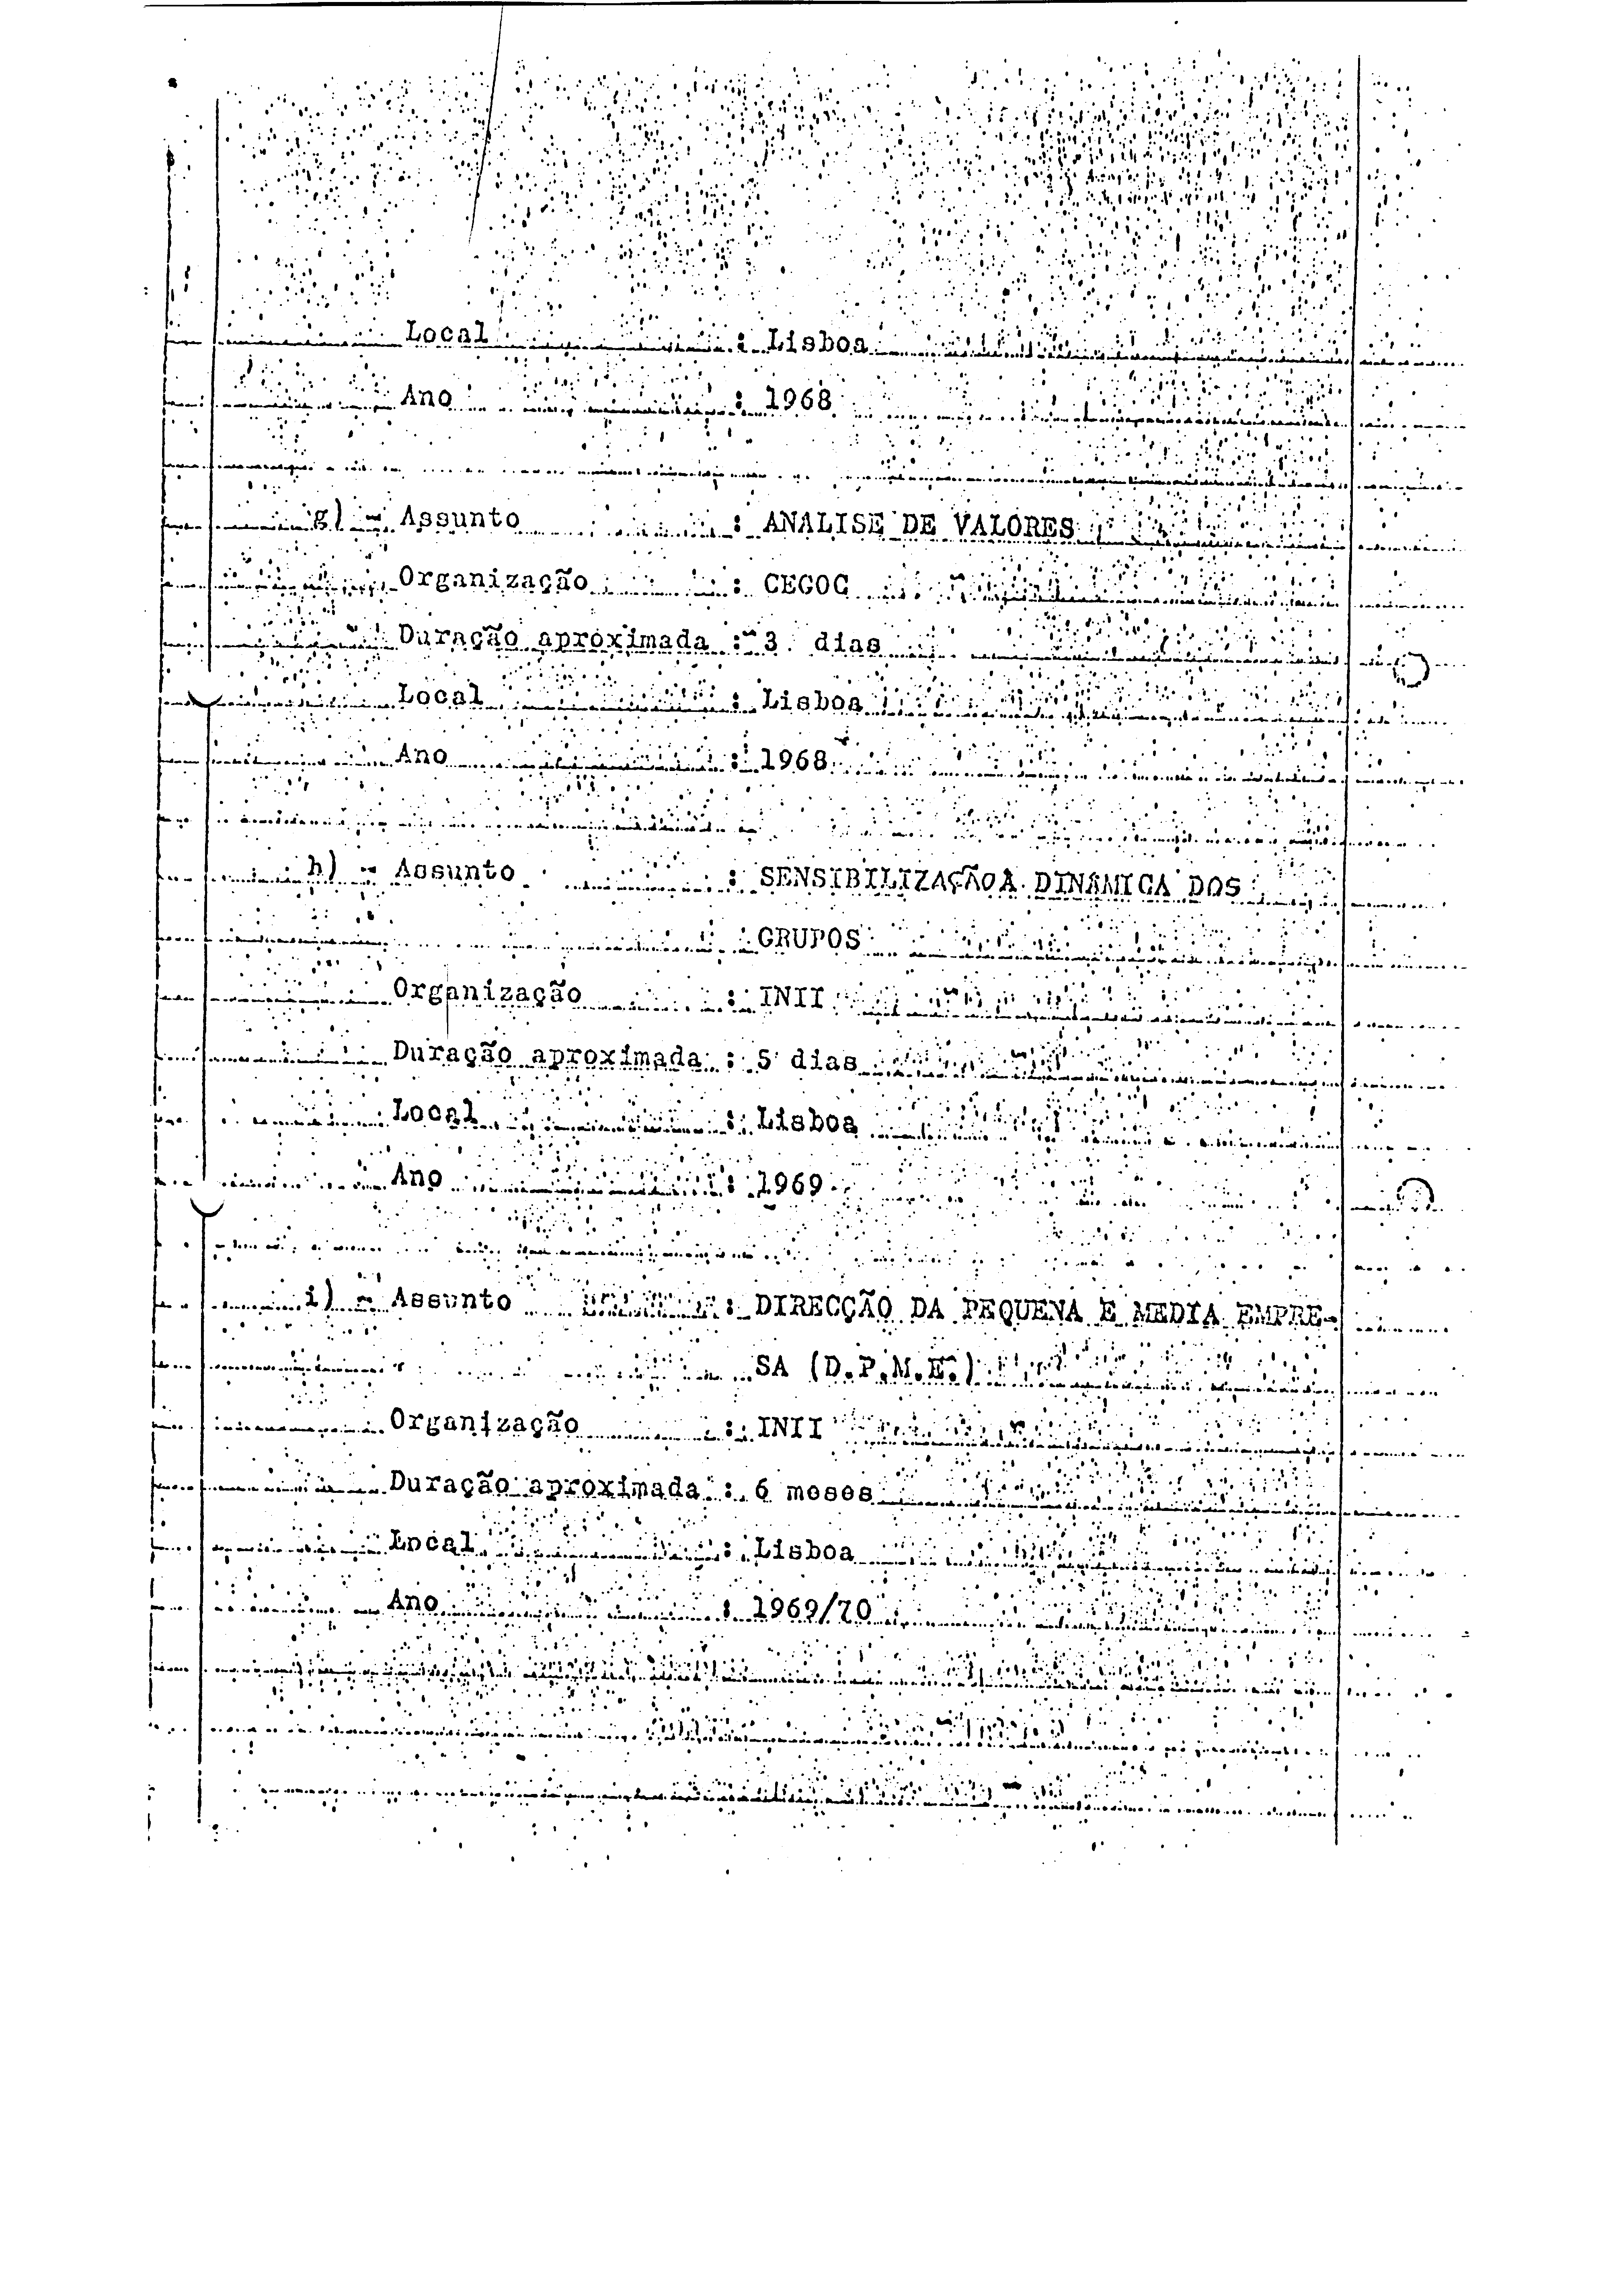 Local : Lisboa
Ano : 1968
g) - Assunto : ANALISE DE VALORES
Organização : CEGOC
Duração aproximada : 3 dias
Local : Lisboa
Ano : 1968
h) - Assunto : SENSIBILIZAÇÃO A DINÂMICA DOS
GRUPOS
Organização : INII
Duração aproximada : 5 dias
Local : Lisboa
Ano : 1969
i) - Assunto : DIRECÇÃO DA PEQUENA E MEDIA EMPRE-
SA (D.P.M.E.)
Organização : INII
Duração aproximada : 6 meses
Local : Lisboa
Ano : 1969/70